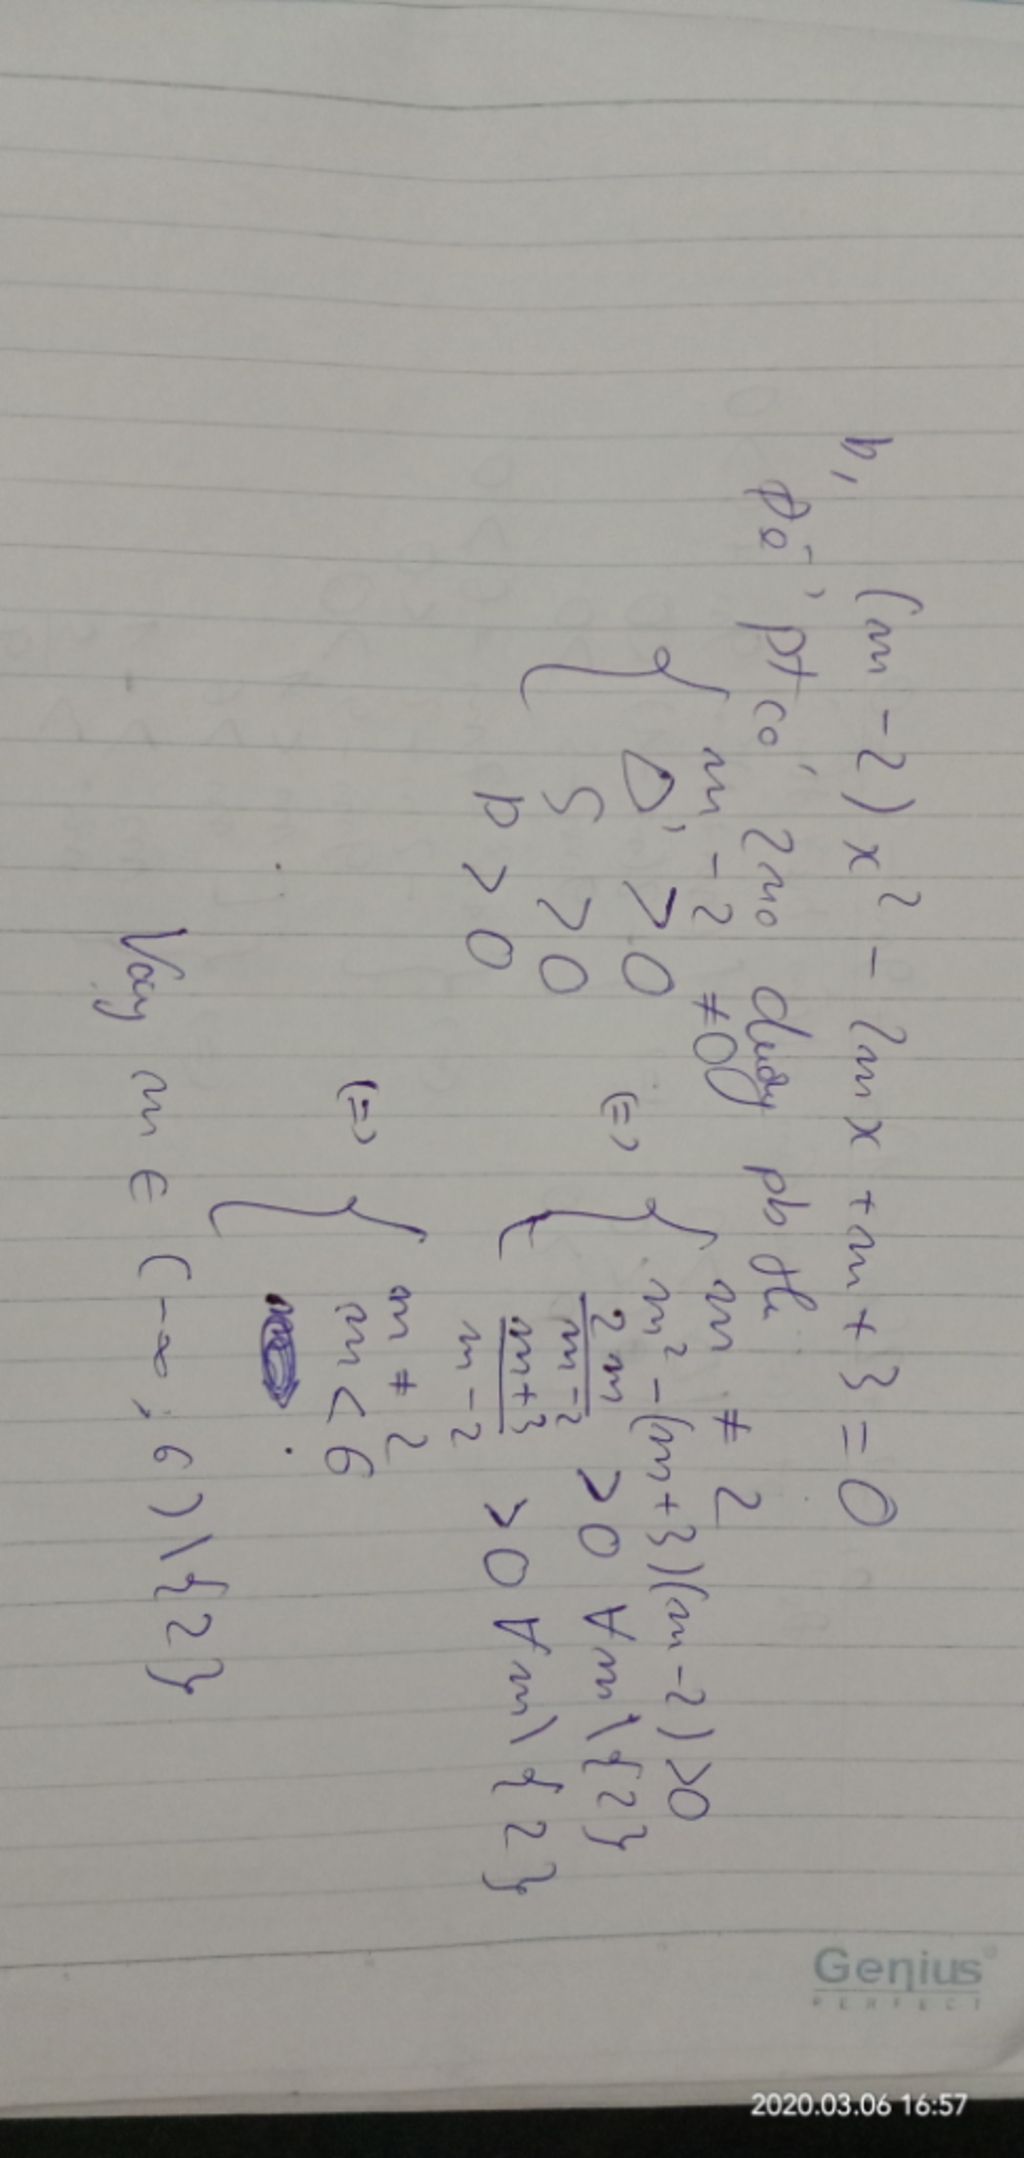 b, (m - 2) x² - 2mx + m + 3 = 0
Để pt có 2 no dương pb thì
{ m - 2 ≠ 0
Δ' > 0
S > 0
p > 0
(=) { m ≠ 2
m² - (m + 3)(m - 2) > 0
2m / m - 2 > 0 ∀ m \ { 2 }
m + 3 / m - 2 > 0 ∀ m \ { 2 }
(=) { m ≠ 2
m < 6
Vậy m ∈ ( -∞ ; 6 ) \ { 2 }
Genius
PERFECT
2020.03.06 16:57